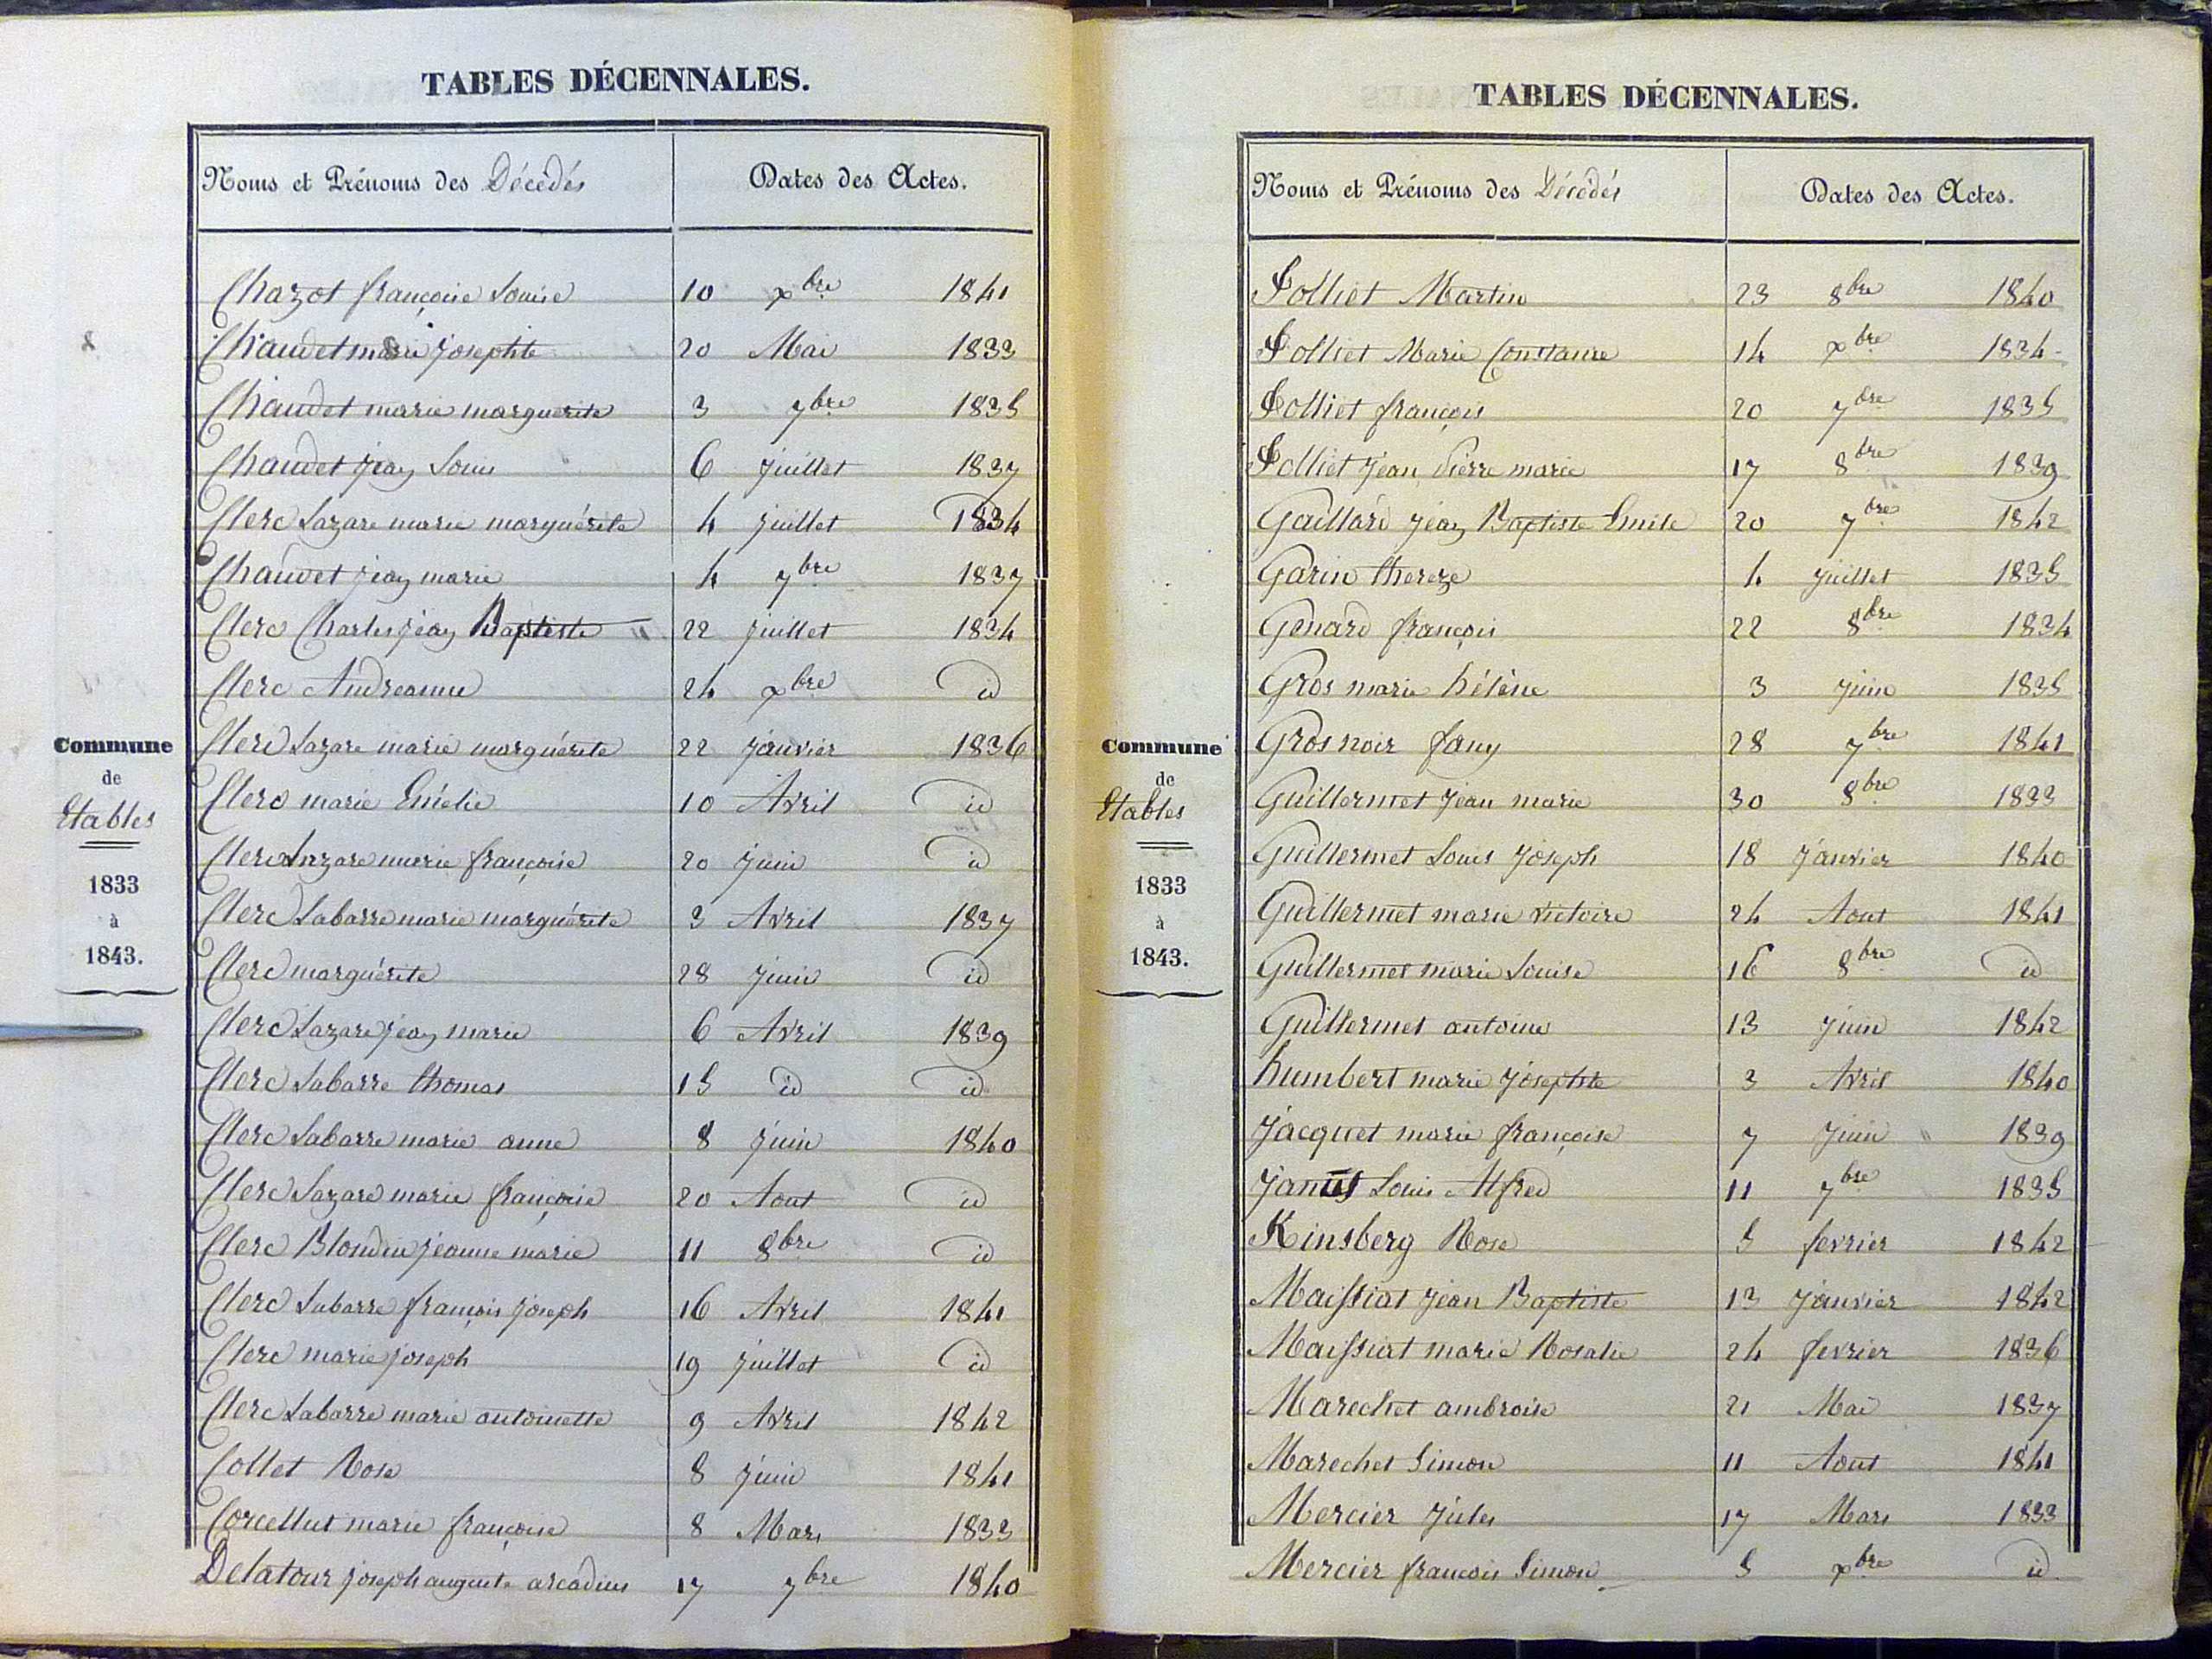 TABLES DÉCENNALES.
Noms et Prénoms des Décédés Dates des Actes.
Chazot françoise Louise 10 xbre 1841
Chaudet marie Josephte 20 Mai 1833
Chaudet marie marguerite 3 7bre 1835
Chaudet jean Louis 6 juillet 1837
Clerc Lazare marie marguérite 4 juillet 1834
Chaudet jean marie 4 7bre 1837
Clerc Charles jean Baptiste 22 juillet 1834
Clerc Andréanne 24 xbre id
Clerc Lazare marie marguérite 22 janvier 1836
Clerc marie Emélie 10 Avril id
Clerc Lazare marie françoise 20 juin id
Clerc Labarre marie marguérite 3 Avril 1837
Clerc marguérite 28 juin id
Clerc Lazare jean marie 6 Avril 1839
Clerc Labarre thomas 15 id id
Clerc Labarre marie anne 8 juin 1840
Clerc Lazare marie françoise 20 Aout id
Clerc Blondin jeanne marie 11 8bre id
Clerc Labarre françois joseph 16 Avril 1841
Clerc marie joseph 19 juillet id
Clerc Labarre marie antoinette 9 Avril 1842
Collet Rose 8 juin 1841
Corcellut marie françoise 8 Mars 1833
Delatour joseph auguste arcadius 17 7bre 1840
Commune
de
Etables
1833
à
1843.
TABLES DÉCENNALES.
Noms et Prénoms des Décédés Dates des Actes.
Folliet Martin 23 8bre 1840
Folliet Marie Constance 14 xbre 1834
Folliet françois 20 7bre 1835
Folliet jean Pierre marie 17 8bre 1839
Gaillard jean Baptiste Emile 20 7bre 1842
Garin thereze 4 juillet 1835
Genard françois 22 8bre 1834
Gros marie hélène 3 juin 1835
Gros noir fany 28 7bre 1841
Guillermet jean marie 30 8bre 1833
Guillermet Louis joseph 18 janvier 1840
Guillermet marie victoire 24 Aout 1841
Guillermet marie Louise 16 8bre id
Guillermet antoine 13 juin 1842
humbert marie josephte 3 Avril 1840
jacquet marie françoise 7 juin 1839
Louis Alfred 11 7bre 1835
Kinsberg Rose 5 fevrier 1842
Maissiat jean Baptiste 13 janvier 1842
Maissiat marie Rosalie 24 fevrier 1836
Marechet ambroise 21 Mai 1837
Marechet Simon 11 Aout 1841
Mercier jules 17 Mars 1833
Mercier françois Simon 5 xbre id
Commune
de
Etables
1833
à
1843.